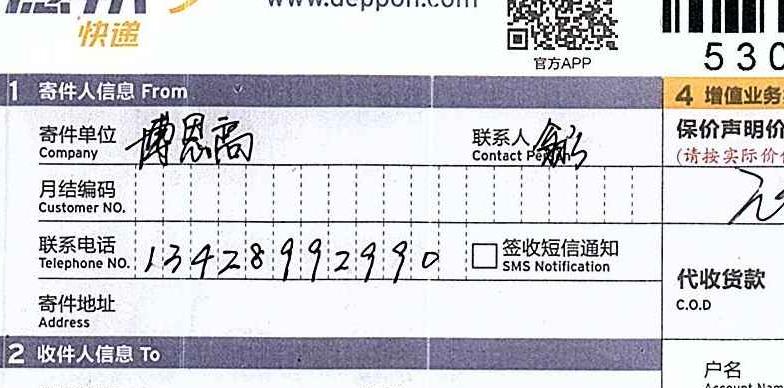 快递
www.deppon.com
官方APP
530
1 寄件人信息 From
寄件单位 博恩高 联系人
Company Contact Person
月结编码
Customer NO.
联系电话 13428992990 签收短信通知
Telephone NO. SMS Notification
寄件地址
Address
2 收件人信息 To
4 增值业务
保价声明价
(请按实际价
代收货款
C.O.D
户名
Account Nam